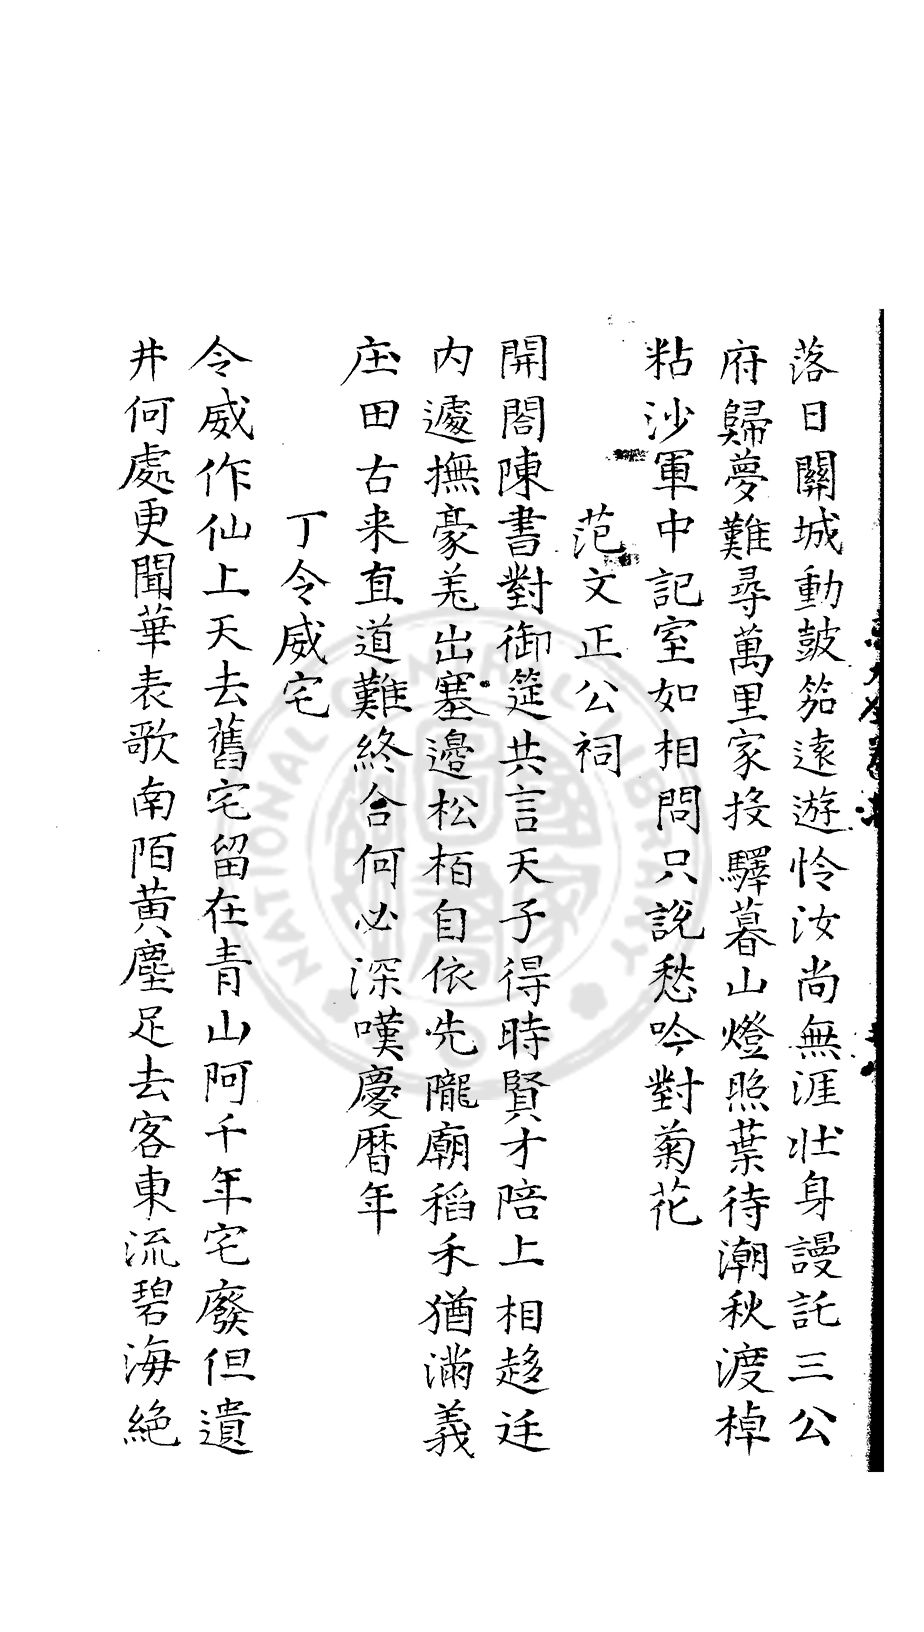 落日關城動鼓笳遠遊怜汝尚無涯壯身謾託三公
府歸夢難尋萬里家投驛暮山燈照葉待潮秋渡棹
粘沙軍中記室如相問只說愁吟對菊花
范文正公祠
開閤陳書對御筵共言天子得時賢才陪上相趍廷
内遽撫豪羌出塞邊松栢自依先隴廟稻禾猶滿義
庄田古来直道難終合何必深嘆慶曆年
丁令威宅
令威作仙上天去舊宅留在青山阿千年宅廢但遺
井何處更聞華表歌南陌黄塵足去客東流碧海絶
NATIONAL CENTRAL LIBRARY